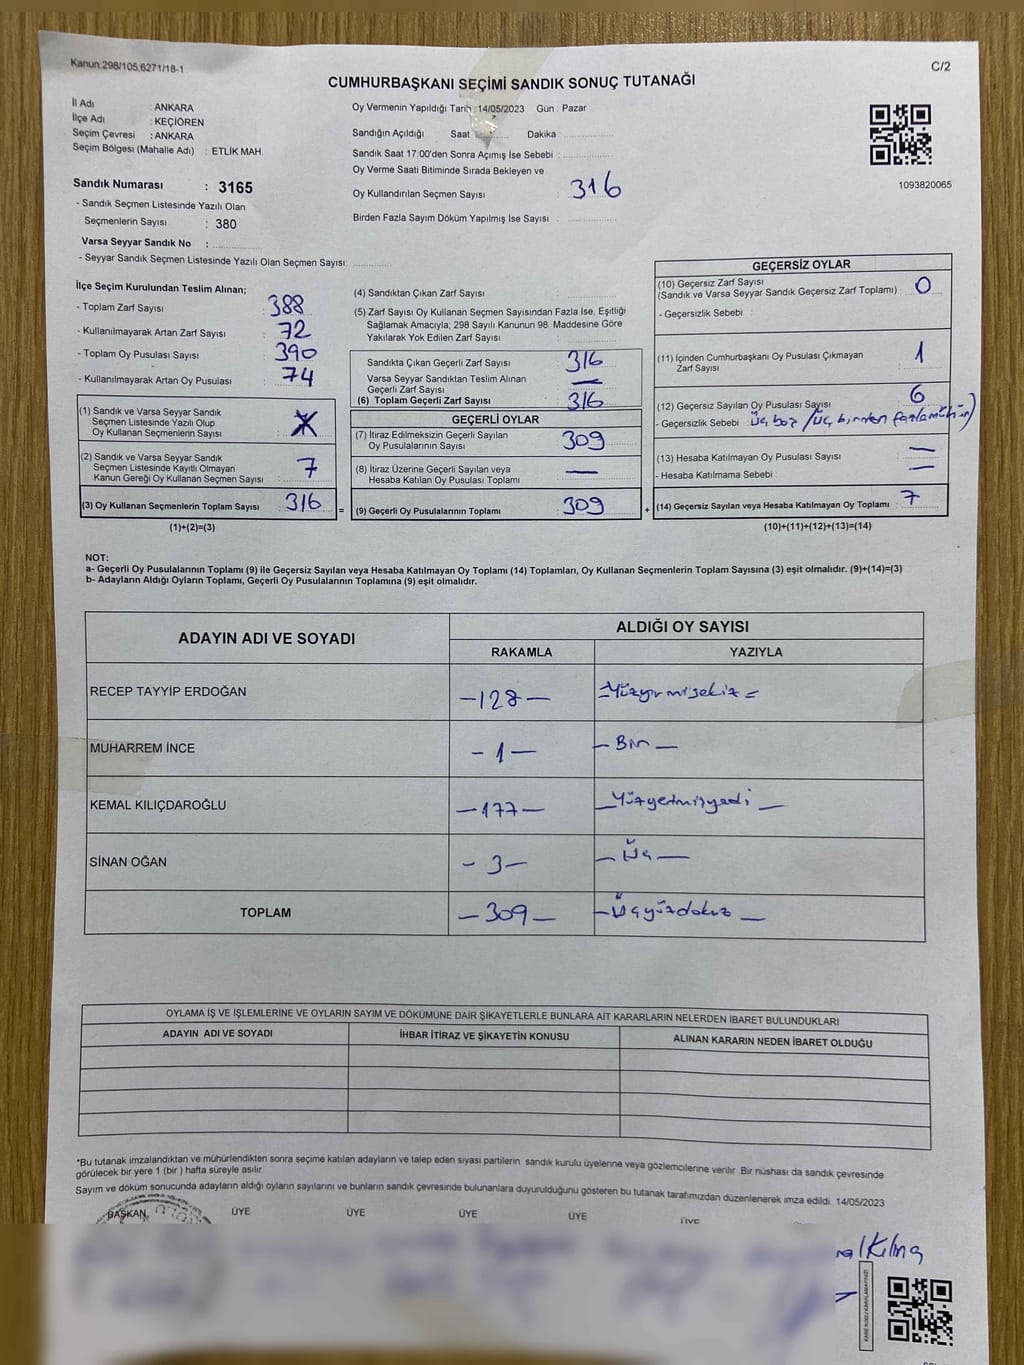 Kanun;298/105,6271/18-1
C/2
CUMHURBAŞKANI SEÇİMİ SANDIK SONUÇ TUTANAĞI
İl Adı : ANKARA
İlçe Adı : KEÇİÖREN
Seçim Çevresi : ANKARA
Seçim Bölgesi (Mahalle Adı) : ETLİK MAH.
Sandık Numarası : 3165
- Sandık Seçmen Listesinde Yazılı Olan
Seçmenlerin Sayısı : 380
Varsa Seyyar Sandık No :
- Seyyar Sandık Seçmen Listesinde Yazılı Olan Seçmen Sayısı:
Oy Vermenin Yapıldığı Tarih :14/05/2023 Gün : Pazar
Sandığın Açıldığı Saat Dakika :
Sandık Saat 17:00'den Sonra Açımış İse Sebebi :
Oy Verme Saati Bitiminde Sırada Bekleyen ve
Oy Kullandırılan Seçmen Sayısı 316
Birden Fazla Sayım Döküm Yapılmış İse Sayısı :
1093820065
İlçe Seçim Kurulundan Teslim Alınan;
- Toplam Zarf Sayısı : 388
- Kullanılmayarak Artan Zarf Sayısı : 72
- Toplam Oy Pusulası Sayısı : 390
- Kullanılmayarak Artan Oy Pusulası : 74
(1) Sandık ve Varsa Seyyar Sandık
Seçmen Listesinde Yazılı Olup
Oy Kullanan Seçmenlerin Sayısı :
(2) Sandık ve Varsa Seyyar Sandık
Seçmen Listesinde Kayıtlı Olmayan
Kanun Gereği Oy Kullanan Seçmen Sayısı : 7
(3) Oy Kullanan Seçmenlerin Toplam Sayısı : 316
(1)+(2)=(3)
(4) Sandıktan Çıkan Zarf Sayısı :
(5) Zarf Sayısı Oy Kullanan Seçmen Sayısından Fazla İse, Eşitliği
Sağlamak Amacıyla; 298 Sayılı Kanunun 98. Maddesine Göre
Yakılarak Yok Edilen Zarf Sayısı :
Sandıkta Çıkan Geçerli Zarf Sayısı : 316
Varsa Seyyar Sandıktan Teslim Alınan
Geçerli Zarf Sayısı : —
(6) Toplam Geçerli Zarf Sayısı : 316
GEÇERLİ OYLAR
(7) İtiraz Edilmeksizin Geçerli Sayılan
Oy Pusulalarının Sayısı : 309
(8) İtiraz Üzerine Geçerli Sayılan veya
Hesaba Katılan Oy Pusulası Toplamı : —
= (9) Geçerli Oy Pusulalarının Toplamı : 309
GEÇERSİZ OYLAR
(10) Geçersiz Zarf Sayısı
(Sandık ve Varsa Seyyar Sandık Geçersiz Zarf Toplamı) : 0
- Geçersizlik Sebebi :
(11) İçinden Cumhurbaşkanı Oy Pusulası Çıkmayan
Zarf Sayısı : 1
(12) Geçersiz Sayılan Oy Pusulası Sayısı : 6
- Geçersizlik Sebebi : üç boş / üç birden fazla mühür)
(13) Hesaba Katılmayan Oy Pusulası Sayısı : —
- Hesaba Katılmama Sebebi : —
+ (14) Geçersiz Sayılan veya Hesaba Katılmayan Oy Toplamı : 7
(10)+(11)+(12)+(13)=(14)
NOT:
a- Geçerli Oy Pusulalarının Toplamı (9) ile Geçersiz Sayılan veya Hesaba Katılmayan Oy Toplamı (14) Toplamları, Oy Kullanan Seçmenlerin Toplam Sayısına (3) eşit olmalıdır. (9)+(14)=(3)
b- Adayların Aldığı Oyların Toplamı, Geçerli Oy Pusulalarının Toplamına (9) eşit olmalıdır.
ADAYIN ADI VE SOYADI ALDIĞI OY SAYISI
RAKAMLA YAZIYLA
RECEP TAYYİP ERDOĞAN —128— =Yüzyirmisekiz=
MUHARREM İNCE -1— —Bir—
KEMAL KILIÇDAROĞLU —177— —Yüzyetmişyedi—
SİNAN OĞAN -3— —Üç—
TOPLAM —309— —Üçyüzdokuz—
OYLAMA İŞ VE İŞLEMLERİNE VE OYLARIN SAYIM VE DÖKÜMÜNE DAİR ŞİKAYETLERLE BUNLARA AİT KARARLARIN NELERDEN İBARET BULUNDUKLARI
ADAYIN ADI VE SOYADI İHBAR İTİRAZ VE ŞİKAYETİN KONUSU ALINAN KARARIN NEDEN İBARET OLDUĞU
*Bu tutanak imzalandıktan ve mühürlendikten sonra seçime katılan adayların ve talep eden siyasi partilerin sandık kurulu üyelerine veya gözlemcilerine verilir. Bir nüshası da sandık çevresinde
görülecek bir yere 1 (bir ) hafta süreyle asılır.
Sayım ve döküm sonucunda adayların aldığı oyların sayılarını ve bunların sandık çevresinde bulunanlara duyurulduğunu gösteren bu tutanak tarafımızdan düzenlenerek imza edildi. 14/05/2023
BAŞKAN ÜYE ÜYE ÜYE ÜYE ÜYE